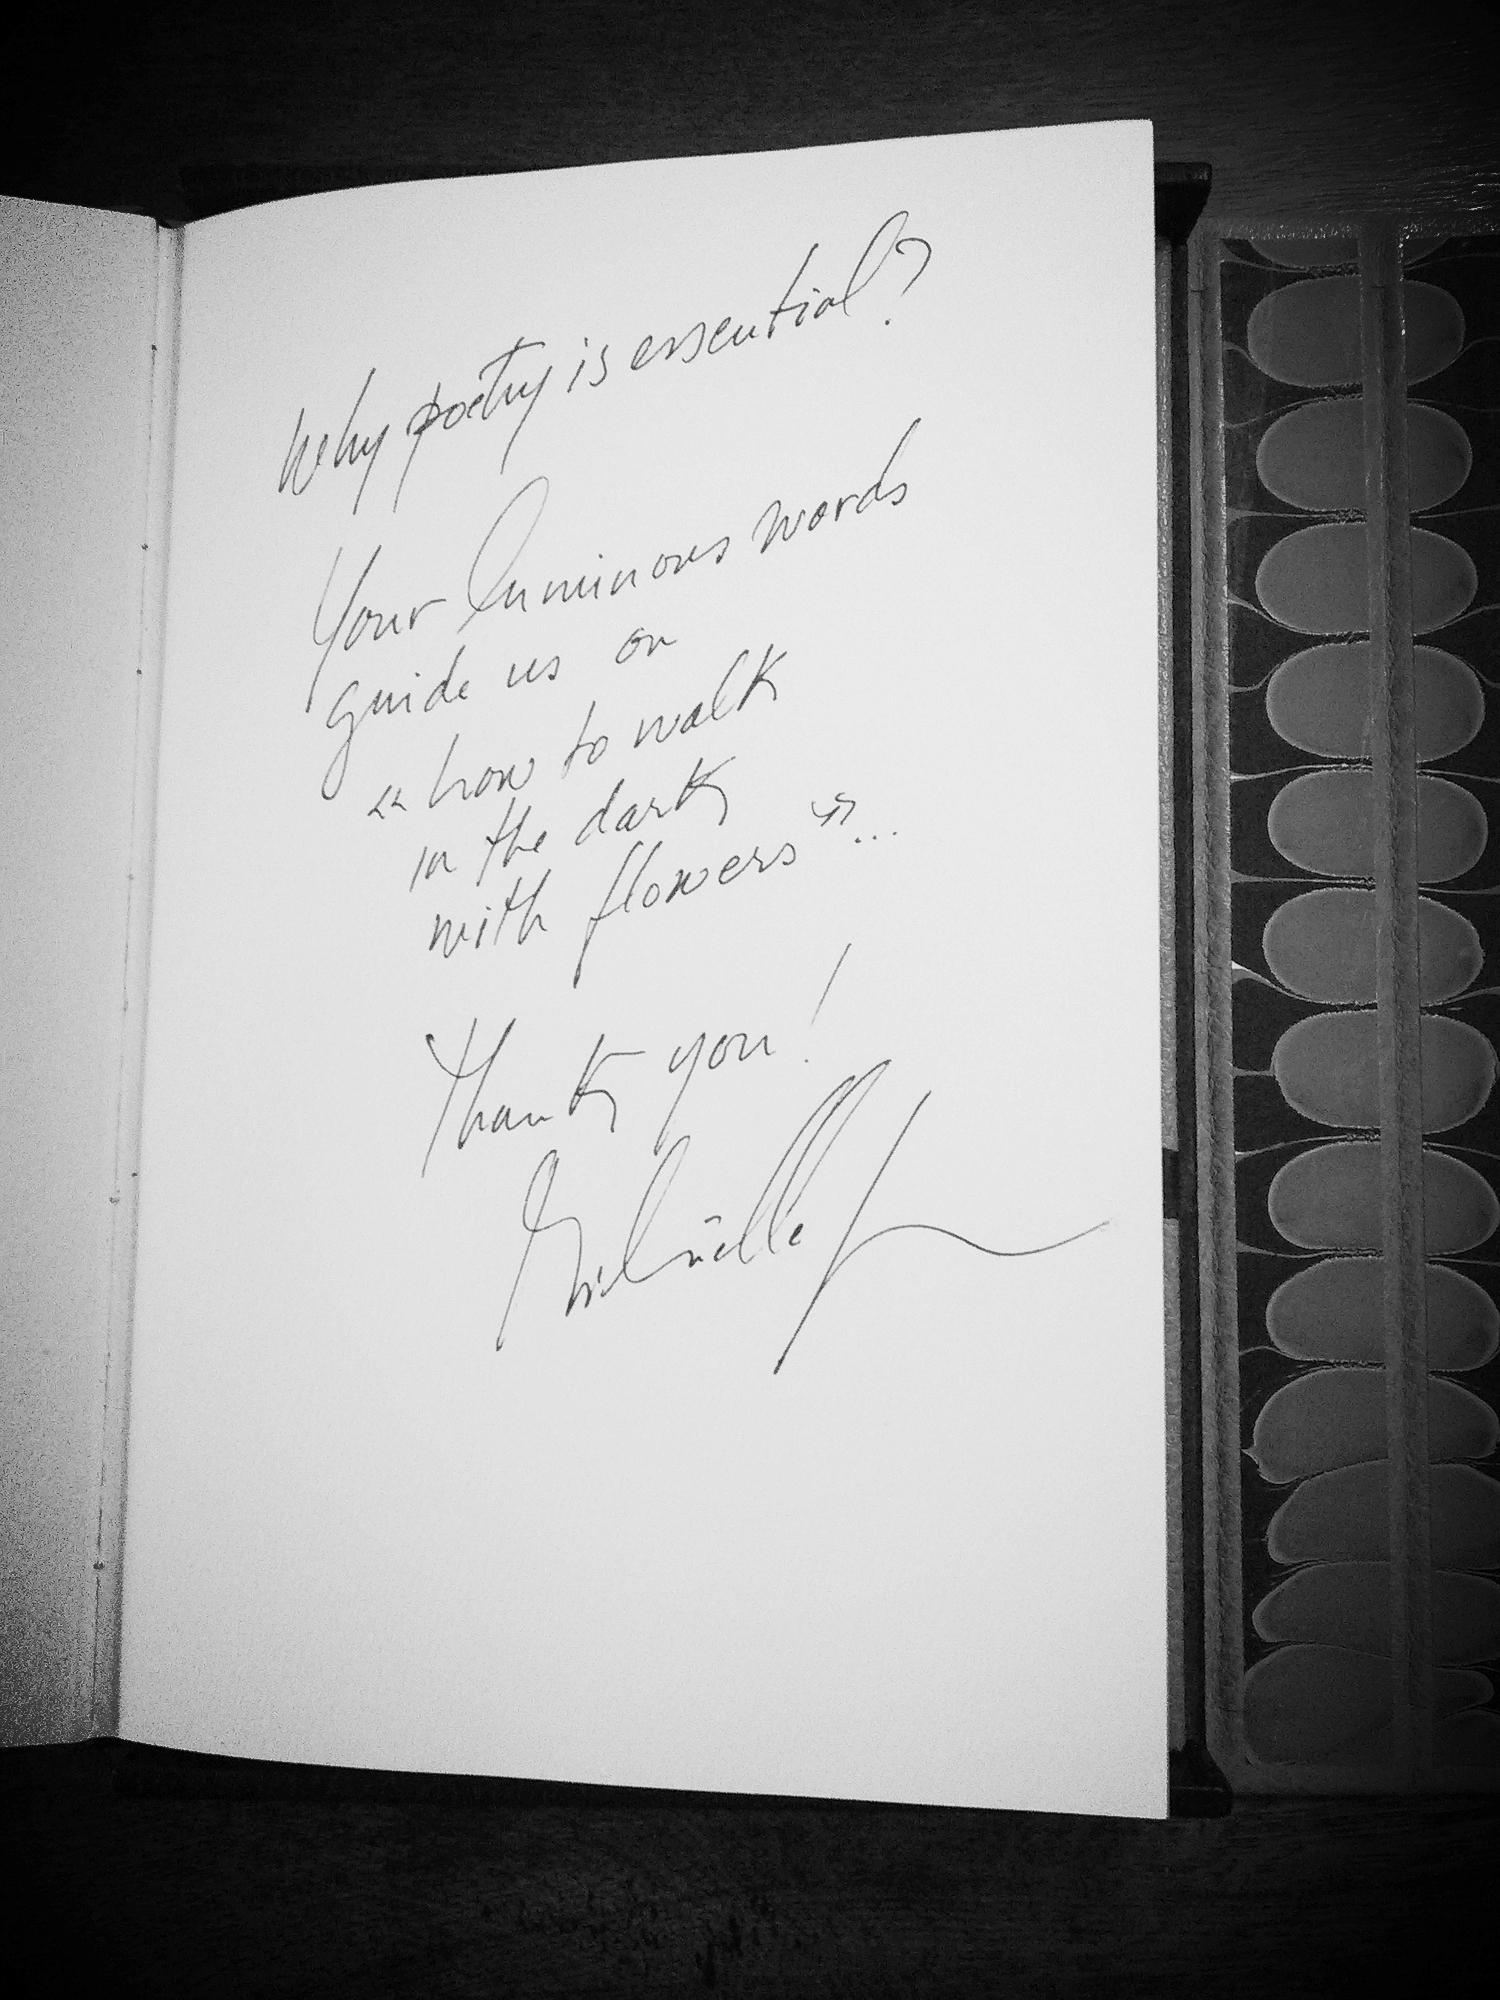 Why poetry is essential?
Your luminous words
guide us on
« how to walk
in the dark
with flowers »...
Thank you!